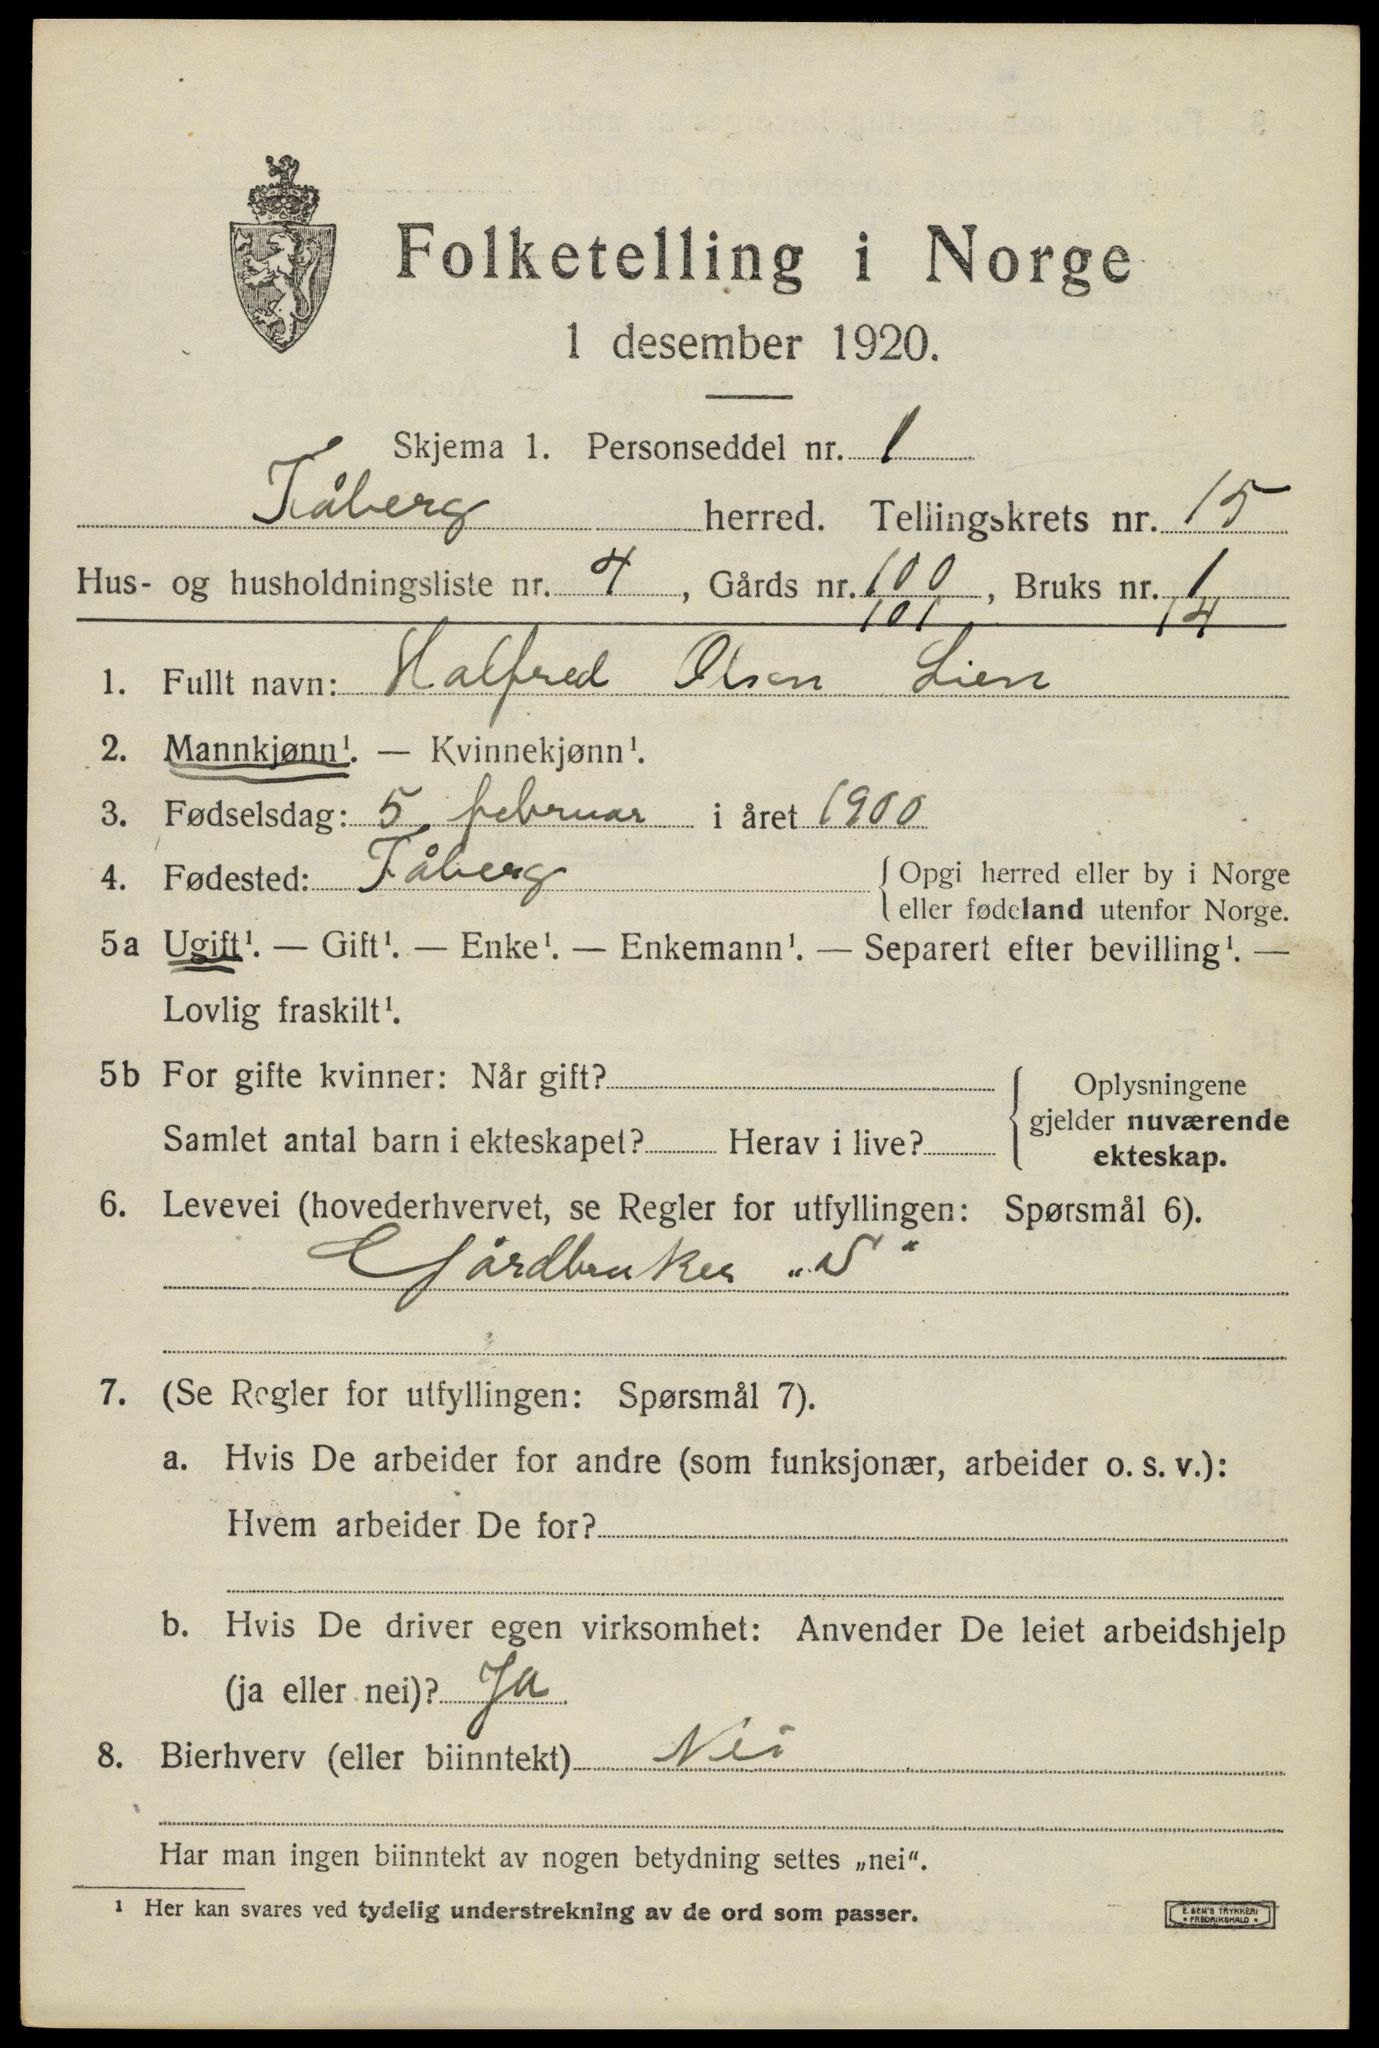 Folketelling i Norge
1 desember 1920.
Skjema 1. Personseddel nr. 1
Fåberg herred. Tellingskrets nr. 15
Hus- og husholdningsliste nr. 4, Gårds nr. 100, Bruks nr. 1
101 14
1. Fullt navn: Halfred Olsen Lien
2. Mannkjønn¹. — Kvinnekjønn¹.
3. Fødselsdag: 5 februar i året 1900
4. Fødested: Fåberg { Opgi herred eller by i Norge
eller fødeland utenfor Norge.
5a Ugift¹. — Gift¹. — Enke¹. — Enkemann¹. — Separert efter bevilling¹. —
Lovlig fraskilt¹.
5b For gifte kvinner: Når gift? { Oplysningene
gjelder nuværende
Samlet antal barn i ekteskapet? Herav i live?
ekteskap.
6. Levevei (hovederhvervet, se Regler for utfyllingen: Spørsmål 6).
Gårdbruker „S“
7. (Se Regler for utfyllingen: Spørsmål 7).
a. Hvis De arbeider for andre (som funksjonær, arbeider o. s. v.):
Hvem arbeider De for?
b. Hvis De driver egen virksomhet: Anvender De leiet arbeidshjelp
(ja eller nei)? Ja
8. Bierhverv (eller biinntekt) Nei
Har man ingen biinntekt av nogen betydning settes „nei“.
¹ Her kan svares ved tydelig understrekning av de ord som passer.
E. SEM'S TRYKKERI
• FREDRIKSHALD •